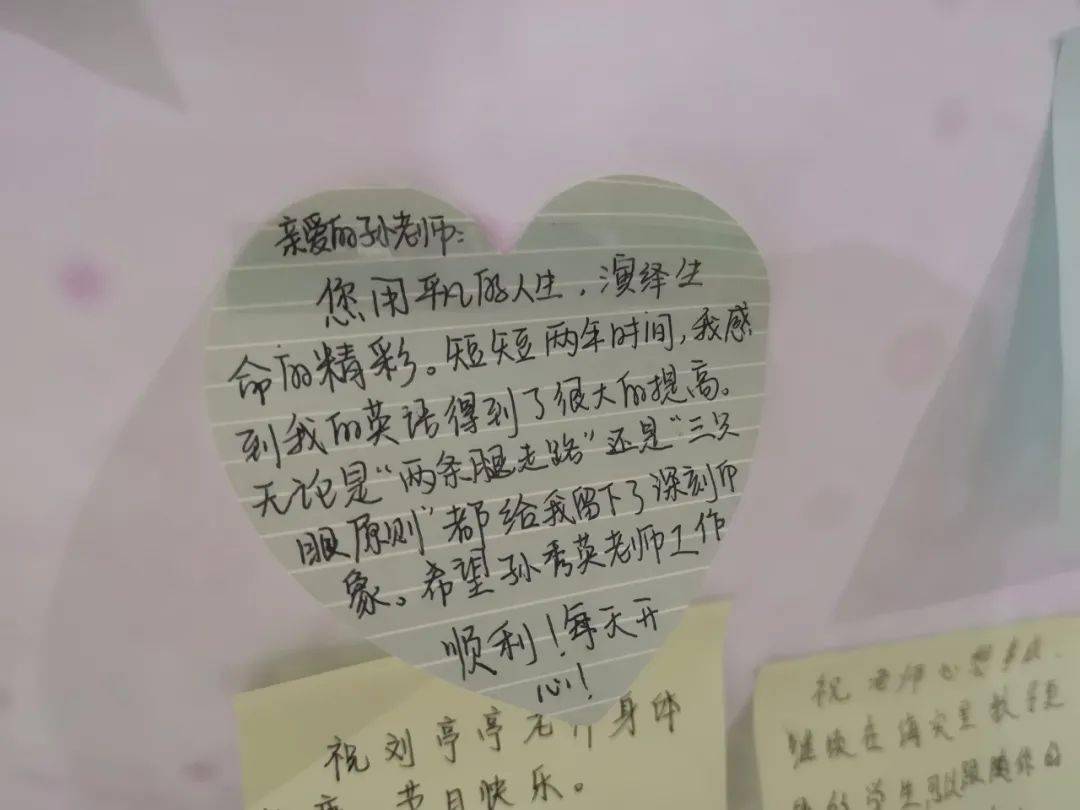 亲爱的孙老师:
您用平凡的人生,演绎生
命的精彩。短短两年时间,我感
到我的英语得到了很大的提高。
无论是“两条腿走路”还是“三只
眼原则”都给我留下了深刻印
象。希望孙秀英老师工作
顺利!每天开
心!
祝刘亭亭老师身体
节日快乐。
祝老师心想事成.
继续在海
学生可以跟随你的